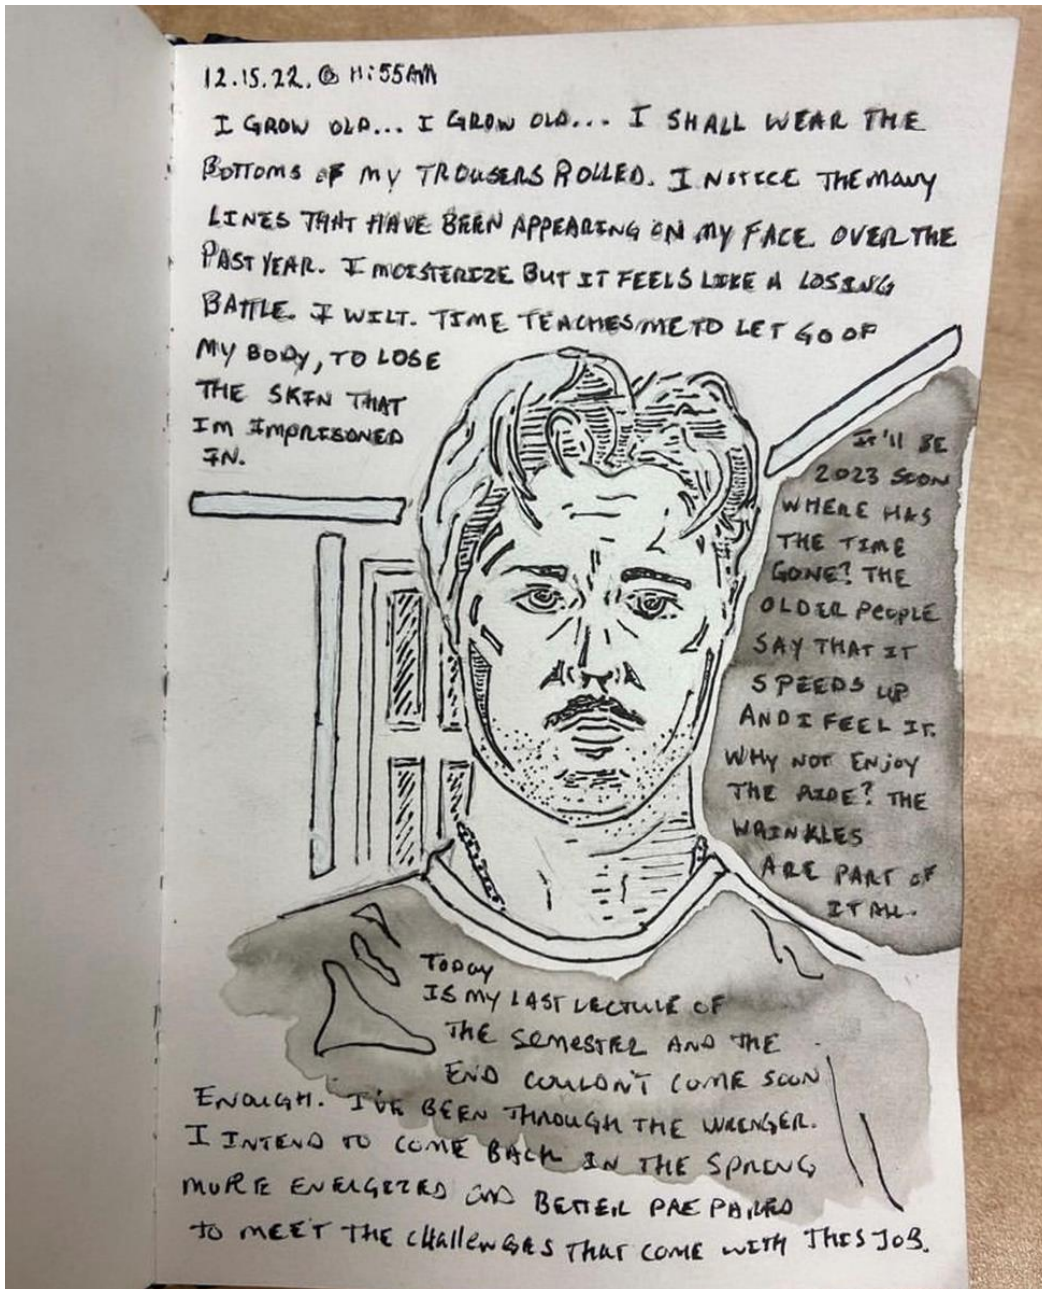 12.15.22. @ 11:55AM
I GROW OLD... I GROW OLD... I SHALL WEAR THE
BOTTOMS OF MY TROUSERS ROLLED. I NOTICE THE MANY
LINES THAT HAVE BEEN APPEARING ON MY FACE OVER THE
PAST YEAR. I MOISTERIZE BUT IT FEELS LIKE A LOSING
BATTLE. I WILT. TIME TEACHES ME TO LET GO OF
MY BODY, TO LOSE
THE SKIN THAT
IM IMPRISONED
IN.
IT'll BE
2023 SOON
WHERE HAS
THE TIME
GONE? THE
OLDER PEOPLE
SAY THAT IT
SPEEDS UP
AND I FEEL IT.
WHY NOT ENJOY
THE RIDE? THE
WRINKLES
ARE PART OF
IT ALL.
TODAY
IS MY LAST LECTURE OF
THE SEMESTER AND THE
END COULDN'T COME SOON
ENOUGH. I'VE BEEN THROUGH THE WRENGER.
I INTEND TO COME BACK IN THE SPRING
MORE ENERGIZED AND BETTER PREPARED
TO MEET THE CHALLENGES THAT COME WITH THIS JOB.